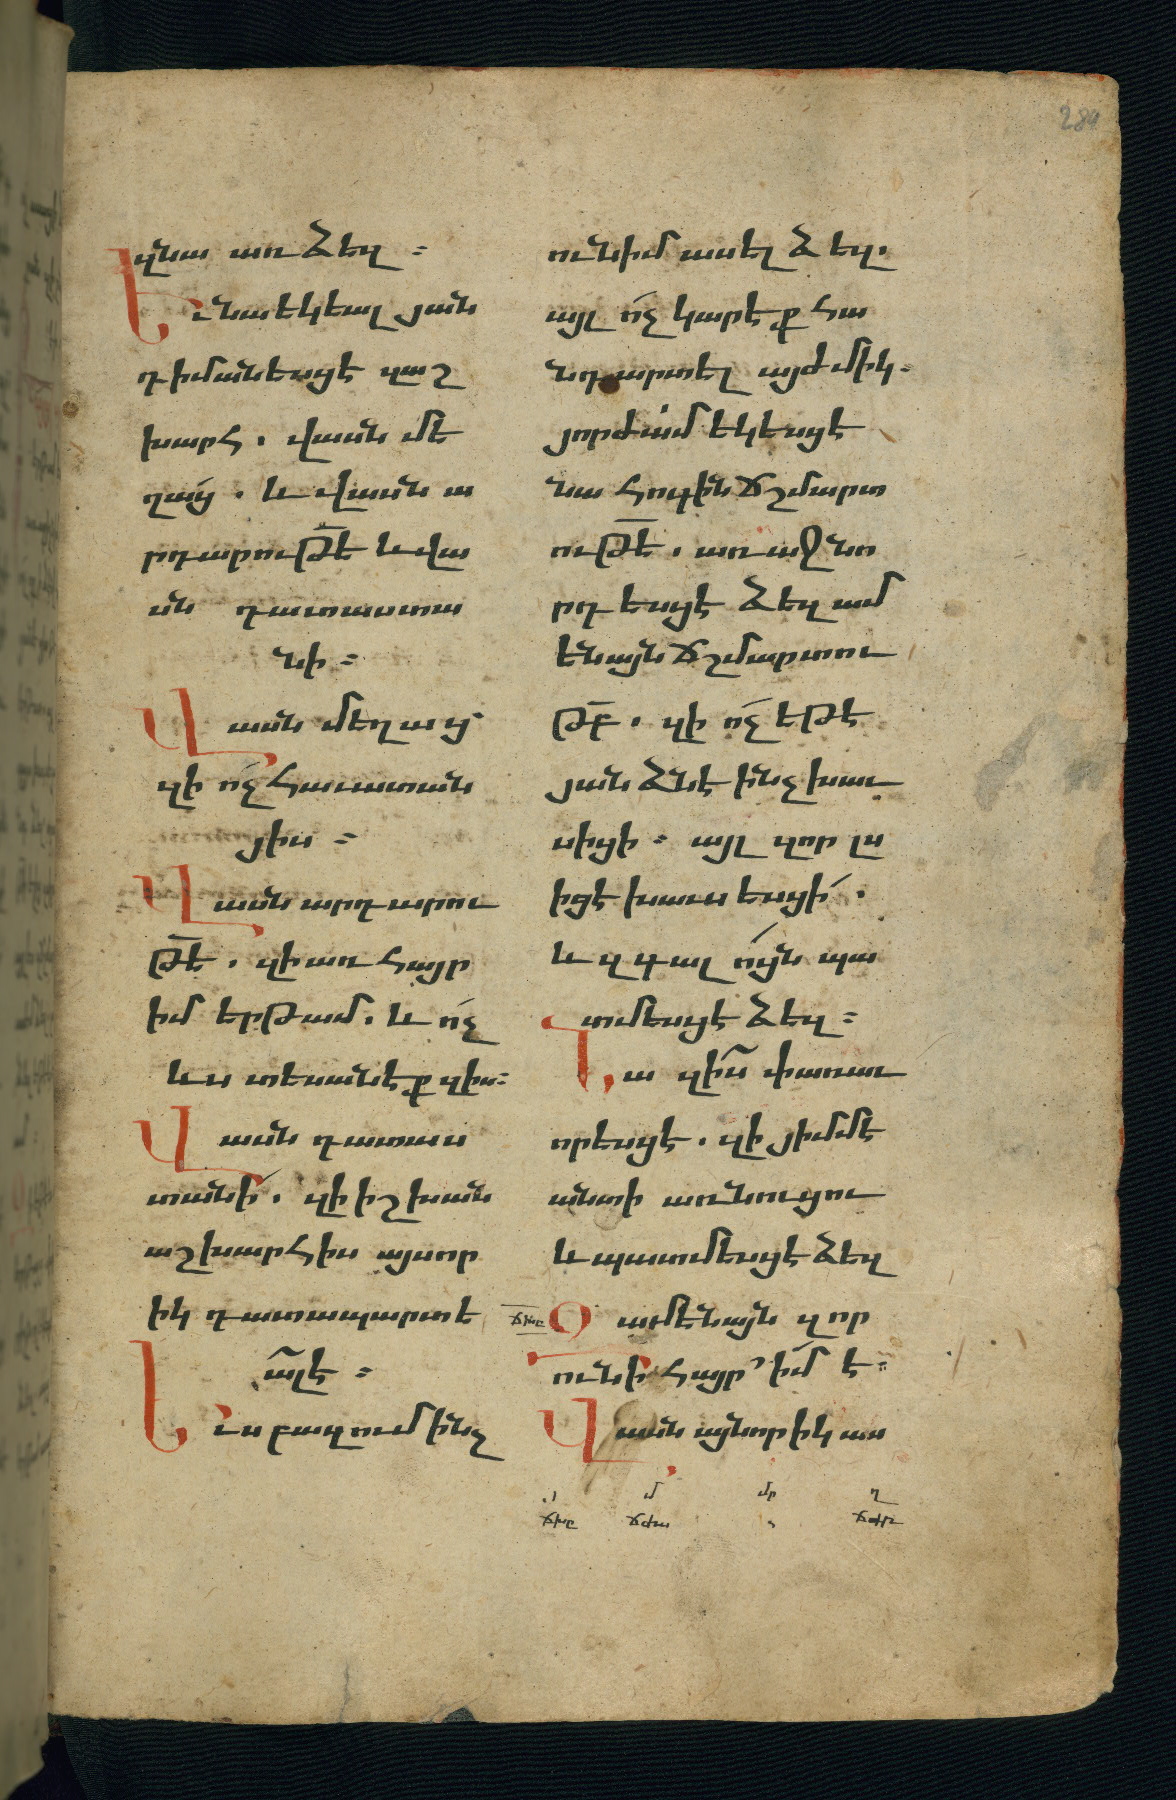 284
զնա առ ձեզ ։
Եւ նա եկեալ յան
դիմանեսցէ զաշ
խարհ . վասն մե
ղաց . և վասն ա
րդարութ̅ե և վա
սն դատաստա
նի ։
Վասն մեղաց
զի ոչ հաւատան
յիս ։
Վասն արդարու
թ̅ե . զի առ հայր
իմ երթամ . և ոչ
ևս տեսանէք զիս ։
Վասն դատաս
տանի . զի իշխան
աշխարհիս այսոր
իկ դատապարտե
ա̅լէ ։
Եւս բազում ինչ
ունիմ ասել ձեզ .
այլ ոչ կարէք հա
նդարտել այժմիկ .
յորժամ եկեսցէ
նա հոգին ճշմարտ
ութ̅ե . առաջնո
րդեսցէ ձեզ ամ
ենայն ճշմարտու
թբ̅ . զի ոչ եթէ
յանձնէ ինչ խաւ
սիցի ։ այլ զոր լս
իցէ խաւսեսցի .
և զգալոյն պա
տմեսցէ ձեզ ։
Նա զիս փառաւ
որեսցէ . զի յիմմէ
անտի առնուցու
և պատմեսցէ ձեզ
ճխը
Զամենայն զոր
ունի հայր իմ է ։
Վասն այնորիկ աս
մ մր ղ
ճխը